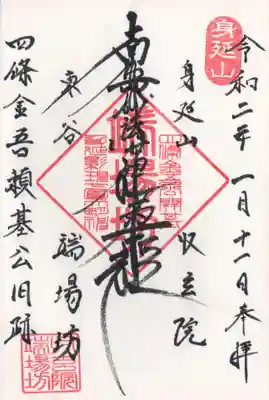 身延山
令和二年 一月十一日 奉拝
身延山 収玄院
南無妙法蓮華経
東谷 端場坊
四條金吾頼基公旧跡
端場坊